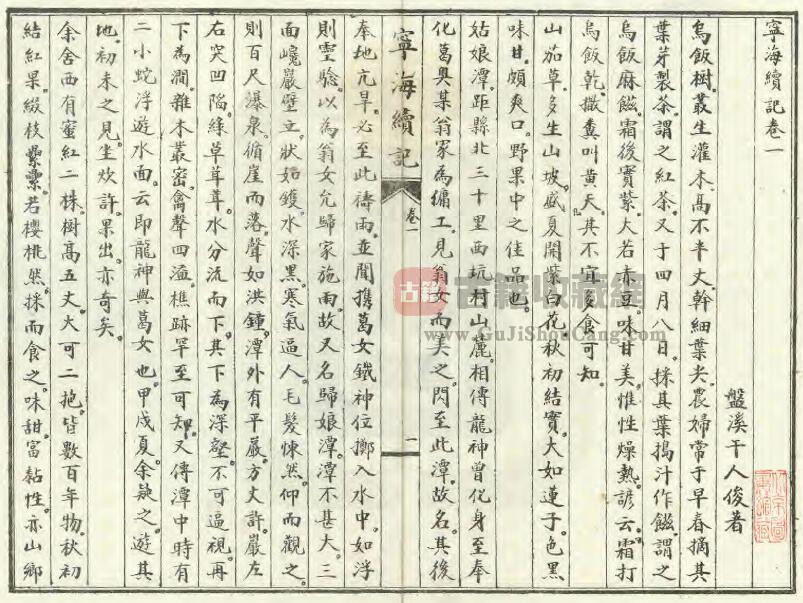 寧海續記卷一
盤溪干人俊著
烏飯樹。叢生灌木。高不半丈。幹細葉尖。農婦常于早春摘其
葉芽製茶。謂之紅茶。又于四月八日。採其葉搗汁作餻。謂之
烏飯麻餻。霜後實紫。大若赤豆。味甘美。惟性燥熱。諺云。霜打
烏飯乾。撒糞叫黃天。其不宜多食可知。
山茄草。多生山坡。盛夏開紫白花。秋初結實。大如蓮子。色黑
味甘。頗爽口。野果中之佳品也。
姑娘潭。距縣北三十里西坑村山麓。相傳龍神曾化身至奉
化葛與某翁家為傭工。見翁女而美之。閃至此潭。故名。其後
寧海續記
卷一
一
奉地亢旱。必至此禱雨。並聞携葛女鐵神位擲入水中。如浮
則靈驗。以為翁女允歸家施雨。故又名歸娘潭。潭不甚大。三
面巉巖壁立。狀如鑊。水深黑。寒氣逼人。毛髮悚然。仰而觀之。
則百尺瀑泉。循崖而落。聲如洪鐘。潭外有平巖。方丈許。巖左
右突凹陷。綠草茸茸。水分流而下。其下為深壑。不可逼視。再
下為澗。雜木叢密。禽聲四溢。樵跡罕至可知。又傳潭中時有
二小蛇浮遊水面。云即龍神與葛女也。甲戌夏。余兟之遊其
地。初未之見。坐炊許果出。亦奇矣。
余舍西有蜜紅二株。樹高五丈。大可二抱。皆數百年物。秋初
結紅果。綴枝纍纍。若櫻桃然。採而食之。味甜。富黏性。亦山鄉
古籍
古籍收藏網
www.GuJiShouCang.com